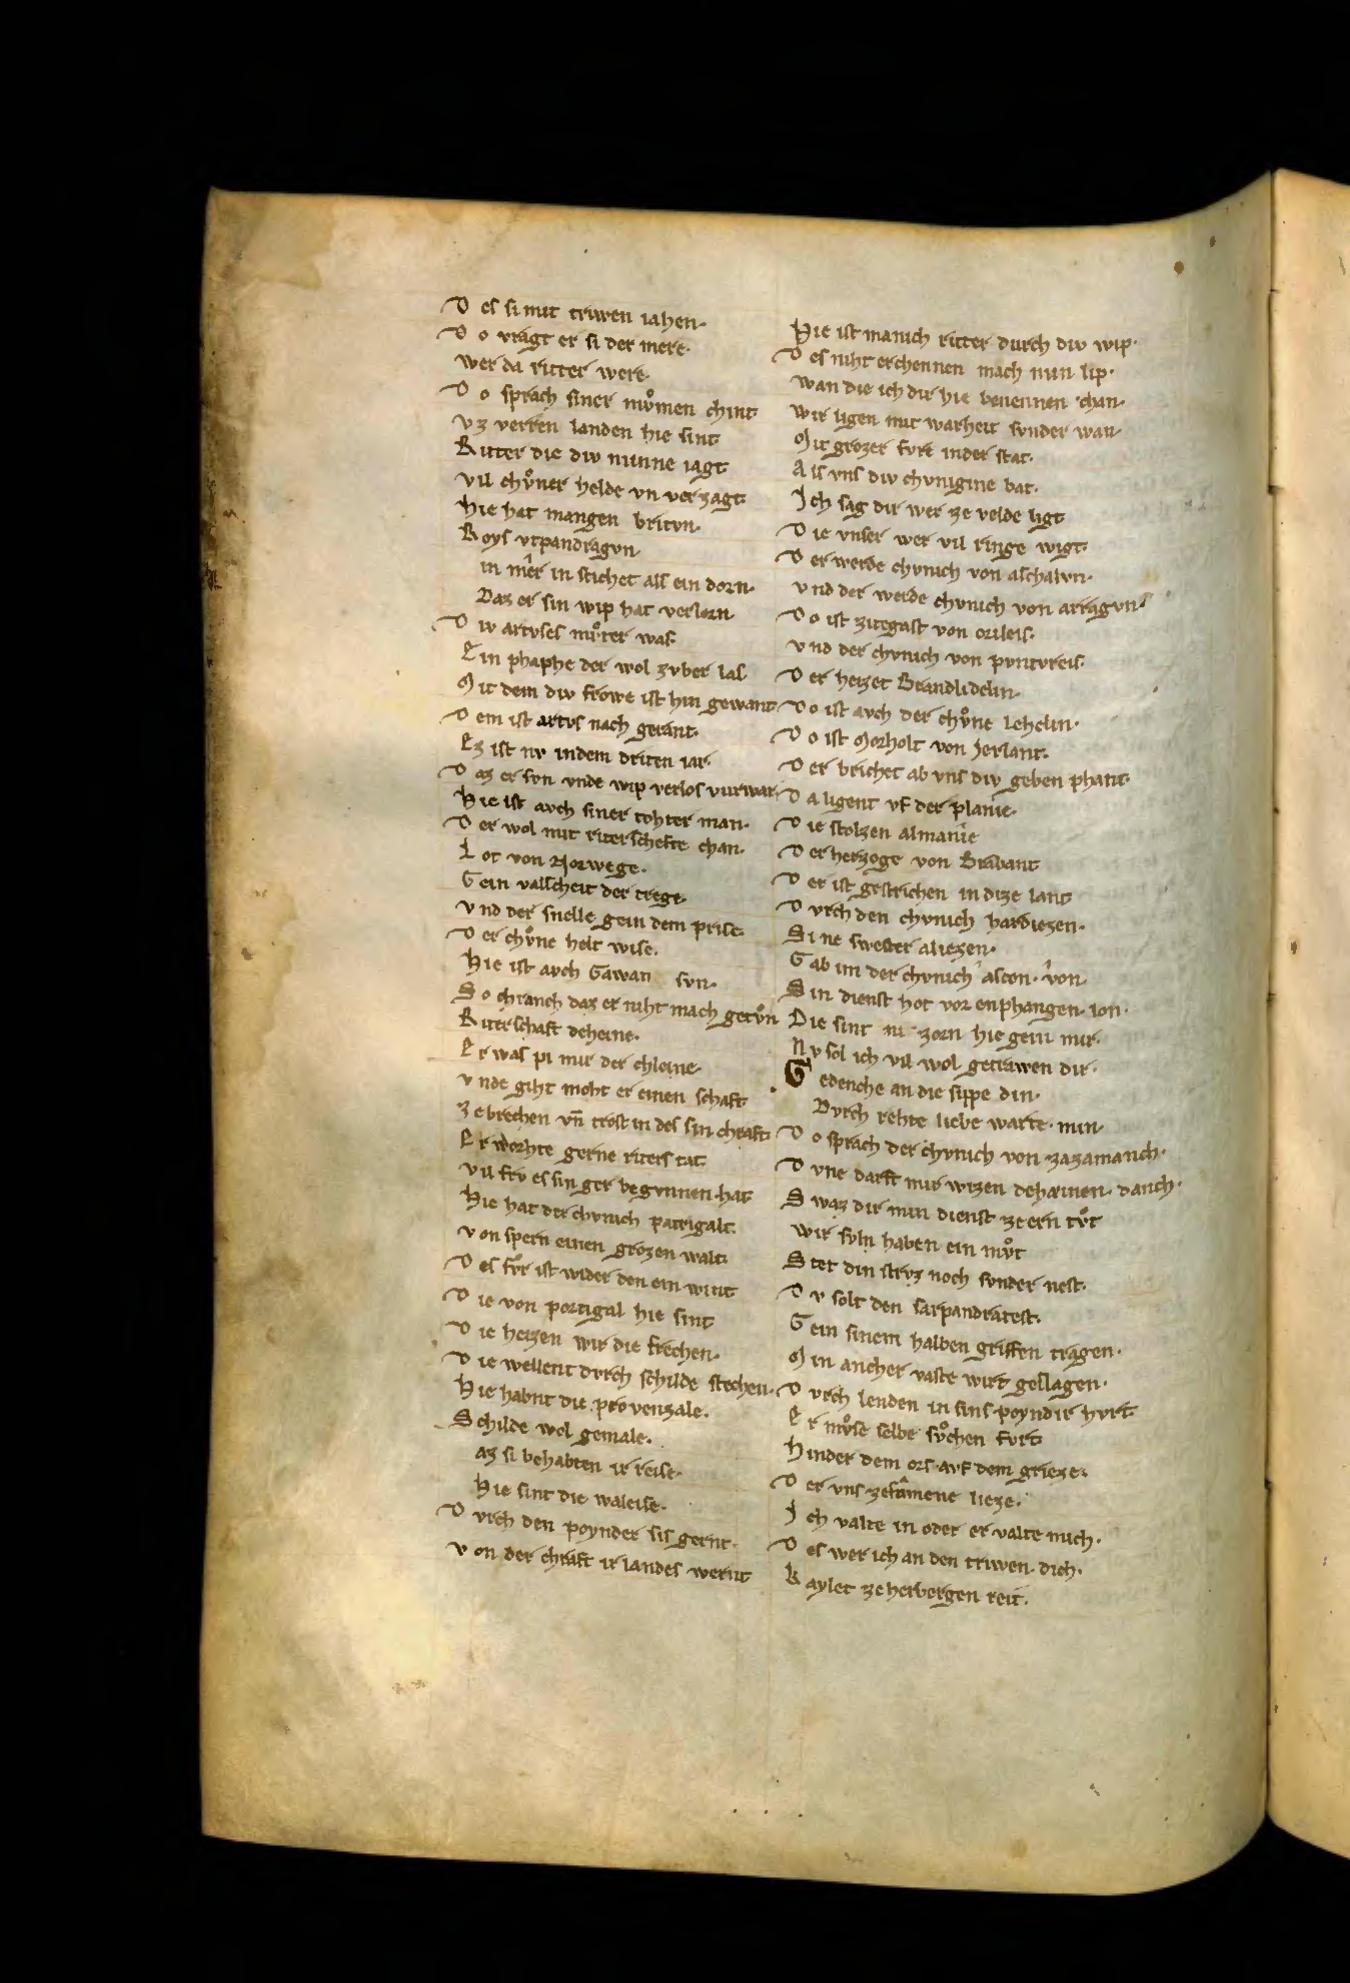 D es si mit triwen iahen·
D o vragt er si der mere·
wer da ritter were·
D o sprach siner mvͦmen chint
v z verren landen hie sint
R itter die div minne iagt
vil chvͦner helde vn verzagt·
hie hat mangen britvn·
R oys vtpandragvn·
in mer in stichet als ein dorn·
Daz er sin wip hat verlorn
D iv artvses mvͦter was·
E in phaphe der wol zvber las
M it dem div frowe ist hin gewant·
D em ist artvs nach gerant·
E z ist nv indem driten iar·
D az er svn vnde wip verlos vurwar·
h ie ist avch siner tohter man·
D er wol mit riterschefte chan·
L ot von Norwege·
G ein valscheit der trege·
v nd der snelle gein dem prise·
D er chvͦne helt wise·
h ie ist avch Gawan svn·
S o chranch daz er niht mach getvͦn
R iterschaft deheine·
E r was pi mir der chleine·
v nde giht moht er einen schaft
z ebrechen vn̄ trost in des sin chraft·
E r worhte gerne riters tat·
vil frv es sin ger begvnnen hat
h ie hat der chvnich patrigalt·
v on spern einen grozen walt·
D es fvͦr ist wider den ein wint
D ie von portigal hie sint
D ie heizen wir die frechen·
D ie wellent dvrch schilde stechen·
h ie habnt die provenzale·
S childe wol gemale·
az si behabten ir reise·
hie sint die waleise·
D vrch den poynder sis gernt·
v on der chraft ir landes wernt
hie ist manich ritter durch div wip·
D es niht erchennen mach min lip·
wan die ich dir hie benennen chan·
wir ligen mit warheit svnder wan·
M it grozer fvrt inder stat·
A ls vns div chvnigine bat·
J ch sag dir wer ze velde ligt
D ie vnser wer vil ringe wigt·
D er werde chvnich von aschalvn·
v nd der werde chvnich von arragvn·
D o ist zitegast von orileis·
v nd der chvnich von pvntvreis·
D er heizet Brandlidelin·
D o ist avch der chvͦne lehelin·
D o ist Morholt von Jerlant·
D er brichet ab vns div geben phant·
D a ligent vf der planie·
D ie stolzen almanie
D er herzoge von Brabant
D er ist gestrichen in dize lant
D vrch den chvnich hardiezen·
Si ne swester aliezen·
G ab im der chvnich ascon· von·
S in dienst hot vor enphangen· lon·
D ie sint mi zorn hie gein mir·
N v sol ich vil wol getrawen dir·
G edenche an die sippe din·
Dvrch rehte liebe warte· min·
D o sprach der chvnich von zazamanch·
D vne darft mir wizen deheinen· danch·
S waz dir min dienst ze ern tvͦt
wir svln haben ein mvͦt
S tet din strvz noch svnder nest·
D v solt den sarpandratest·
G ein sinem halben griffen tragen·
M in ancher vaste wirt geslagen·
D vrch lenden in sins poyndir hvrt·
E r mvͦse selbe svͦchen fvrt
h inder dem ors avf dem grieze·
D er vns zesamene lieze·
J ch valte in oder er valte mich·
D es wer ich an den triwen· dich·
K aylet ze herbergen reit·